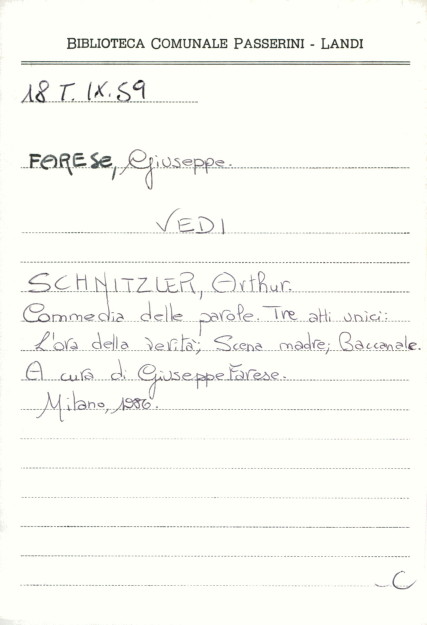 BIBLIOTECA COMUNALE PASSERINI - LANDI
18 T. IX. 59
FARESE, Giuseppe.
VEDI
SCHNITZLER, Arthur.
Commedia delle parole. Tre atti unici:
L'ora della verità; Scena madre; Baccanale.
A cura di Giuseppe Farese.
Milano, 1986.
C